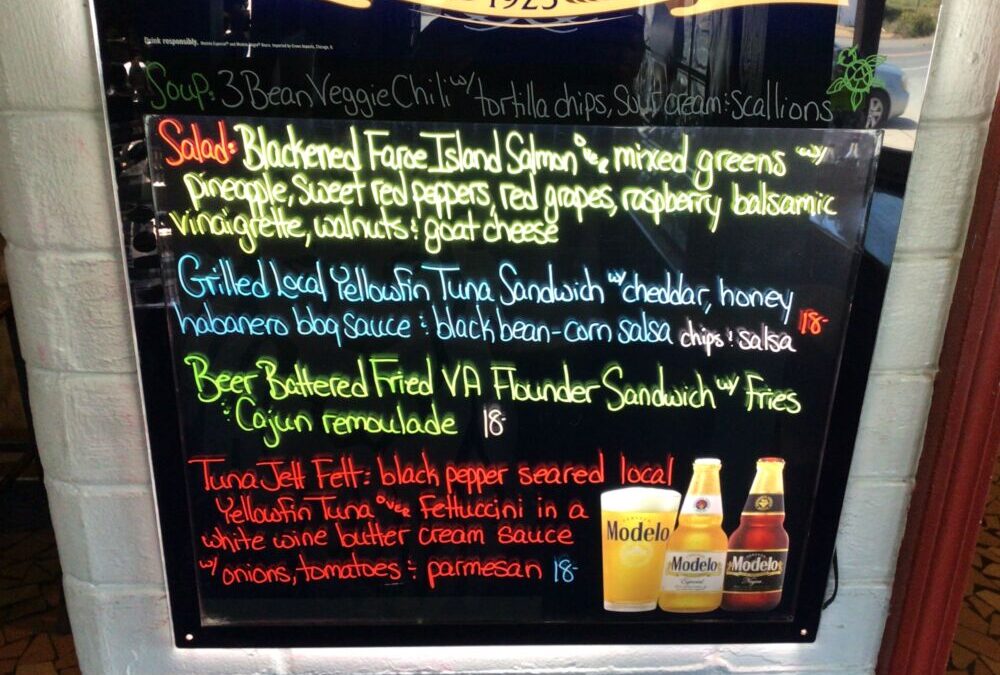 1925
Drink responsibly.
Soup: 3 Bean Veggie Chili w/ tortilla chips, sour cream : scallions
Salad: Blackened Faroe Island Salmon over mixed greens w/
pineapple, sweet red peppers, red grapes, raspberry balsamic
vinaigrette, walnuts : goat cheese
Grilled Local Yellowfin Tuna Sandwich w/ cheddar, honey
habanero bbq sauce : black bean-corn salsa chips : salsa 18-
Beer Battered Fried VA Flounder Sandwich w/ Fries
: Cajun remoulade 18-
Tuna Jett Fett: black pepper seared local
Yellowfin Tuna over Fettuccini in a
white wine butter cream sauce
w/ onions, tomatoes : parmesan 18-
Modelo
Modelo
Especial
Modelo
Negra